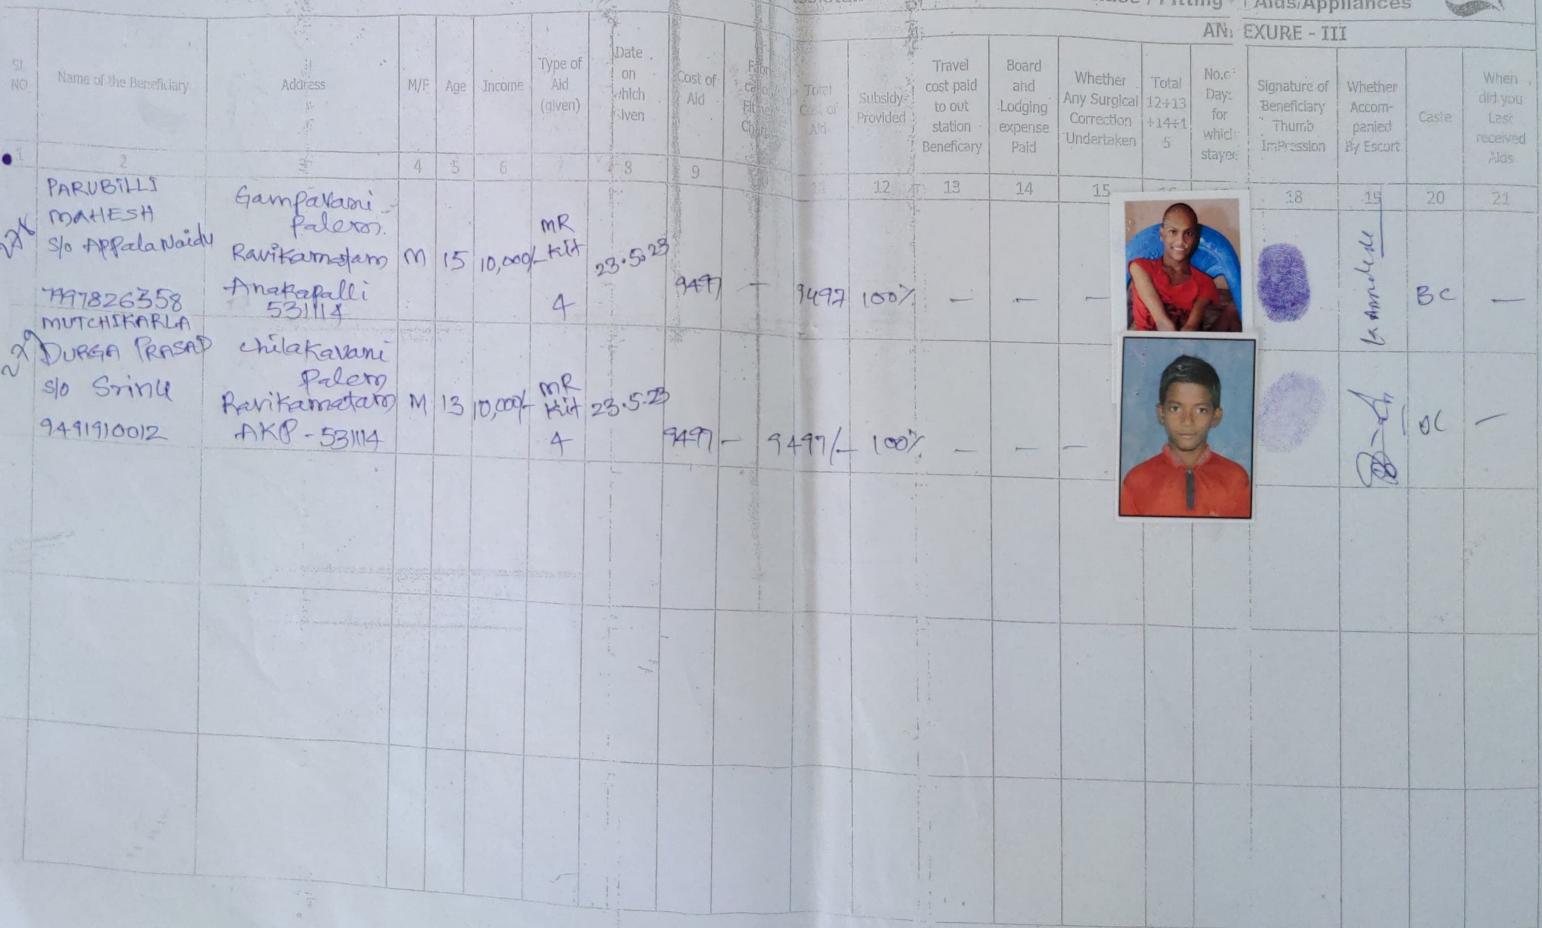 Aids/Appliances
ANEXURE - III
Sl. NO
Name of the Beneficiary
Address
M/F
Age
Income
Type of Aid (given)
Date on which Given
Cost of Aid
Total Cost of Aid
Subsidy Provided
Travel cost paid to out station Beneficary
Board and Lodging expense Paid
Whether Any Surgical Correction Undertaken
Total 12+13+14+15
No.of Days for which stayed
Signature of Beneficiary Thumb ImPression
Whether Accompanied By Escort
Caste
When did you Last received Aids
1 2 3 4 5 6 8 9 12 13 14 15 18 19 20 21
PARUBILLI
MAHESH
S/o Appala Naidu
7997826358
Gampavani
Palem.
Ravikamatam
Anakapalli
531114
M 15 10,000/- MR Kit 4 23.5.23 9497 — 9497 100% — — — BC —
MUTCHIKARLA
DURGA PRASAD
S/o Srinu
9491910012
Chilakavani
Palem
Ravikamatam
AKP - 531114
M 13 10,000/- MR Kit 4 23.5.23 9497 — 9497/- 100% — — — —